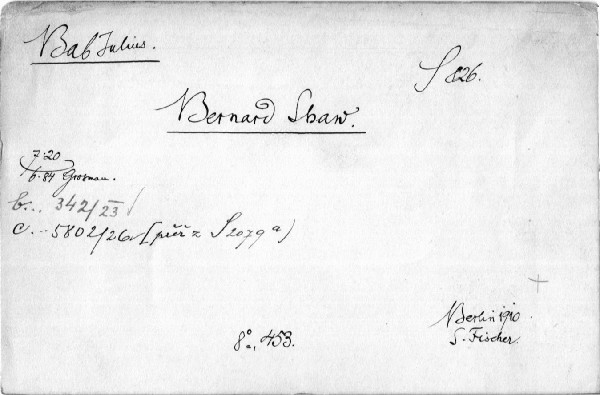 Bab Julius.
S 826.
Bernard Shaw.
7·20
6·84 Grosman.
b... 342/23
c... 5802/26 (přeř z S 2079a)
Berlin 1910.
S. Fischer.
8°., 453.